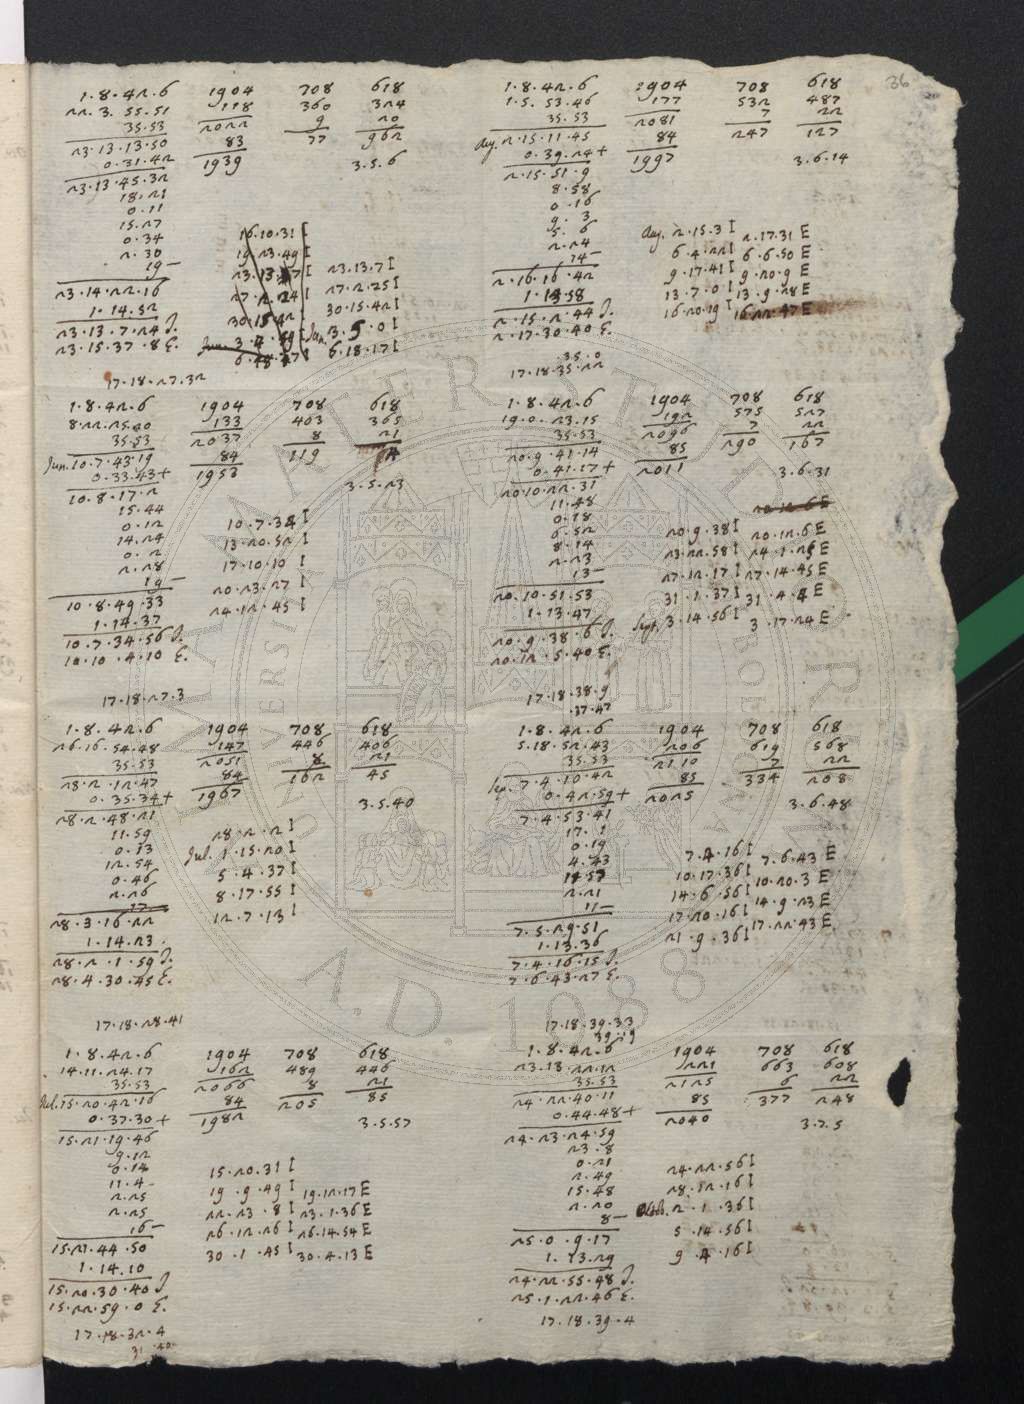 36
1.8.42.6 1904 708 618
22.3.55.51 118 360 324
35.53 2022 9 20
23.13.13.50 83 77 962
0.31.42 1939 3.5.6
23.13.45.32
18.21
0.11
15.27
0.34 16.10.31 I
2.30 19.23.49 I
19— 23.13.7 I
23.14.22.16 27.2.25 I
1.14.52 30.15.42 I
23.13.7.24 J. Jun. 3.5.0 I
23.15.37.8 E. 6.18.17 I
17.18.27.32
1.8.42.6 1904 708 618
8.22.25.20 133 403 365
35.53 2037 8 21
Jun. 10.7.43.19 84 119
0.33.43+ 1953 3.5.23
10.8.17.2
15.44
0.12 10.7.34 I
14.24 13.20.52 I
0.2 17.10.10 I
2.28 20.23.27 I
19— 24.12.45 I
10.8.49.33
1.14.37
10.7.34.56 J.
10.10.4.10 E.
17.18.27.3
1.8.42.6 1904 708 618
26.16.54.48 147 446 406
35.53 2051 8 21
28.2.12.47 84 162 45
0.35.34+ 1967 3.5.40
28.2.48.21
11.59 28.2.2 I
0.13 Jul. 1.15.20 I
12.54 5.4.37 I
0.46 8.17.55 I
2.26 12.7.13 I
17—
28.3.16.22
1.14.23
28.2.1.59 J.
28.4.30.45 E.
17.18.28.41
1.8.42.6 1904 708 618
14.11.24.17 162 489 446
35.53 2066 8 21
Jul. 15.20.42.16 84 205 85
0.37.30+ 1982 3.5.57
15.21.19.46
9.12
0.14 15.20.31 I
11.4 19.9.49 I 19.12.17 E
2.25 22.23.8 I 23.1.36 E
2.25 26.12.26 I 26.14.54 E
16— 30.1.45 I 30.4.13 E
15.21.44.50
1.14.10
15.20.30.40 J.
15.22.59.0 E.
17.18.32.4
31.40
1.8.42.6 1904 708 618
1.5.53.46 177 532 487
35.53 2081 7 22
Aug. 2.15.11.45 84 247 127
0.39.24+ 1997 3.6.14
2.15.51.9
8.58
0.16
9.3
5.6 Aug. 2.15.3 I 2.17.31 E
2.24 6.4.22 I 6.6.50 E
14— 9.17.41 I 9.20.9 E
2.16.16.42 13.7.0 I 13.9.28 E
1.13.58 16.20.19 I 16.22.47 E
2.15.2.44 J.
2.17.30.40 E.
35.0
17.18.35.22
1.8.42.6 1904 708 618
19.0.23.15 192 575 527
35.53 2096 7 22
20.9.41.14 85 290 167
0.41.17+ 2011 3.6.31
20.10.22.31
11.48
0.18
6.52 20.9.38 I 20.12.6 E
8.14 23.22.58 I 24.1.26 E
2.23 27.12.17 I 27.14.45 E
13— 31.1.37 I 31.4.4 E
20.10.51.53 Sept. 3.14.56 I 3.17.24 E
1.13.47
20.9.38.6 J.
20.12.5.40 E.
17.18.38.9
37.47
1.8.42.6 1904 708 618
5.18.52.43 206 619 568
35.53 2110 7 22
Sep. 7.4.10.42 85 334 208
0.42.59+ 2025 3.6.48
7.4.53.41
17.1
0.19
4.43 7.4.16 I 7.6.43 E
14.57 10.17.36 I 10.20.3 E
2.21 14.6.56 I 14.9.23 E
11— 17.20.16 I 17.22.43 E
7.5.29.51 21.9.36 I
1.13.36
7.4.16.15 J.
7.6.43.27 E.
17.18.39.33
39.19
1.8.42.6 1904 708 618
23.13.22.12 221 663 608
35.53 2125 6 22
24.22.40.11 85 377 248
0.44.48+ 2040 3.7.5
24.23.24.59
23.8
0.21
2.49 24.22.56 I
15.48 28.12.16 I
2.20 Octob. 2.1.36 I
8— 5.14.56 I
25.0.9.17 9.4.16 I
1.13.29
24.22.55.48 J.
25.1.22.46 E.
17.18.39.4